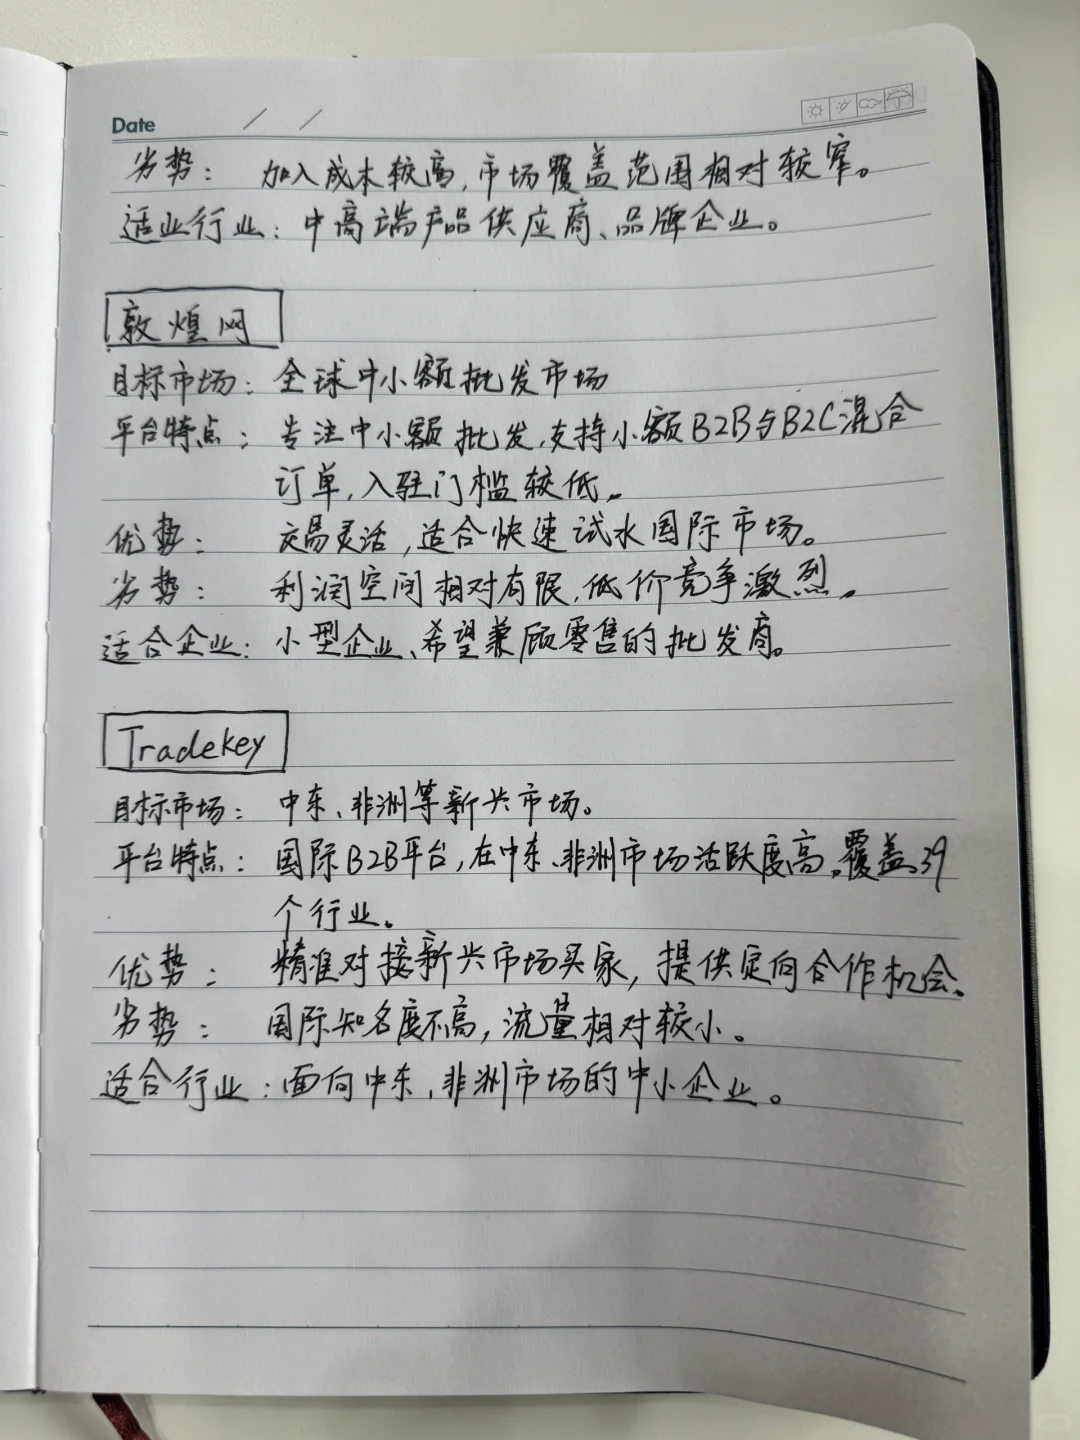 Date / /
劣势： 加入成本较高，市场覆盖范围相对较窄。
适业行业：中高端产品供应商、品牌企业。
敦煌网
目标市场：全球中小额批发市场
平台特点：专注中小额批发，支持小额B2B与B2C混合
订单，入驻门槛较低。
优势： 交易灵活，适合快速试水国际市场。
劣势： 利润空间相对有限，低价竞争激烈。
适合企业：小型企业、希望兼顾零售的批发商。
Tradekey
目标市场：中东、非洲等新兴市场。
平台特点：国际B2B平台，在中东、非洲市场活跃度高，覆盖39
个行业。
优势： 精准对接新兴市场买家，提供定向合作机会。
劣势： 国际知名度不高，流量相对较小。
适合行业：面向中东、非洲市场的中小企业。